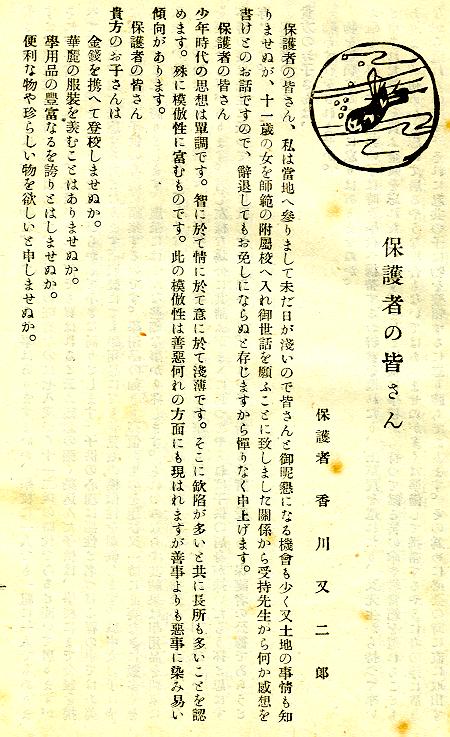 保護者の皆さん
保護者　香川又二郎
保護者の皆さん、私は當地へ參りまして未だ日が淺いので皆さんと御昵懇になる機會も少く又土地の事情も知
りませぬが、十一歲の女を師範の附屬校へ入れ御世話を願ふことに致しました關係から受持先生から何か感想を
書けとのお話ですので、辭退してもお免しにならぬと存じますから憚りなく申上げます。
保護者の皆さん
少年時代の思想は單調です。智に於て情に於て意に於て淺薄です。そこに缺陷が多いと共に長所も多いことを認
めます。殊に模倣性に富むものです。此の模倣性は善惡何れの方面にも現はれますが善事よりも惡事に染み易い
傾向があります。
保護者の皆さん
貴方のお子さんは
金錢を携へて登校しませぬか。
華麗の服裝を羨むことはありませぬか。
學用品の豐富なるを誇りとはしませぬか。
便利な物や珍らしい物を欲しいと申しませぬか。